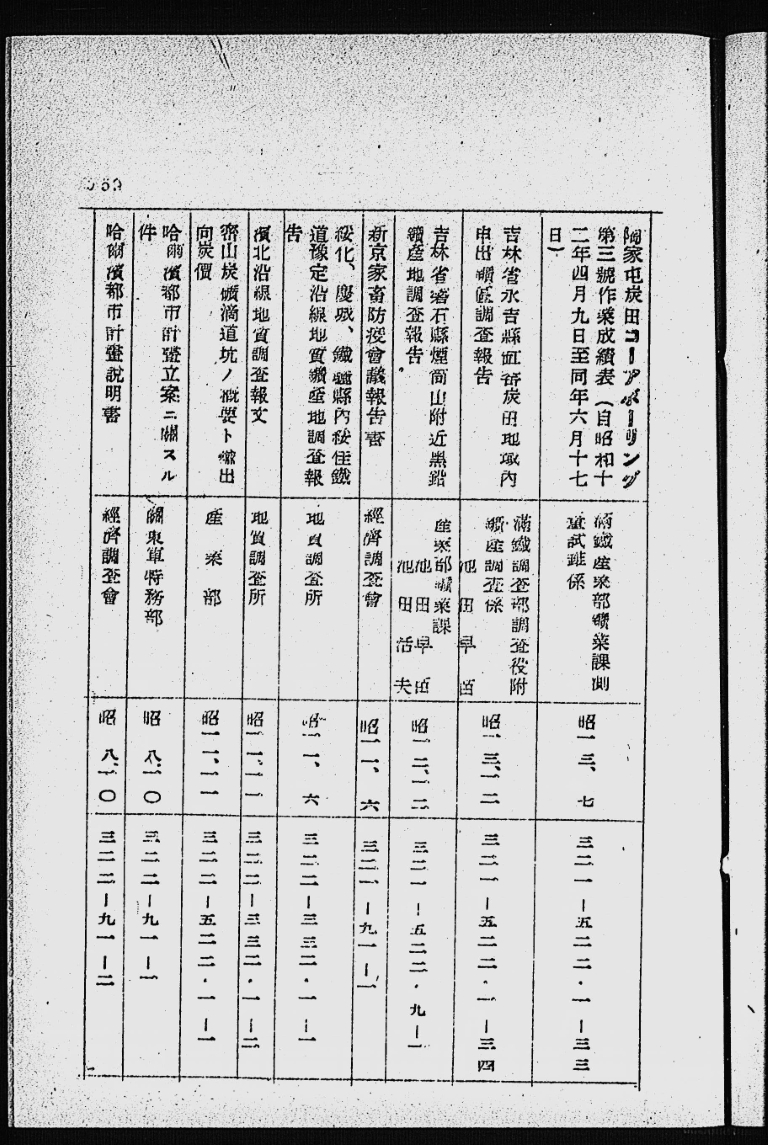 陶家屯炭田コーアボーリング
第三號作業成績表(自昭和十
二年四月九日至同年六月十七
日)
滿鐵產業部鑛業課測
量試錐係
昭一三、七
三二一―五二二・一―三三
吉林省永吉縣缸窰炭田地域內
申出鑛區調查報告
滿鐵調查部調查役附
鑛產調查係
池田早苗
昭一三、一二
三二一―五二二・一―三四
吉林省磐石縣煙筒山附近黑鉛
鑛產地調查報告
產業部鑛業課
池田早苗
池田活夫
昭一二、一二
三二一―五二二・九―一
新京家畜防疫會議報告書
經濟調查會
昭一一、六
三二一―九一―一
綏化、慶城、鐵驪縣內綏佳鐵
道豫定沿線地質鑛產地調查報
告
地質調查所
昭一一、六
三二二―三三二・一―一
濱北沿線地質調查報文
地質調查所
昭一一、一一
三二二―三三二・一―二
密山炭礦滴道坑ノ槪要ト輸出
向炭價
產業部
昭一一、一一
三二二―五二二・一―一
哈爾濱都市計畫立案ニ關スル
件
關東軍特務部
昭八、一〇
三二二―九一―一
哈爾濱都市計畫說明書
經濟調查會
昭八、一〇
三二二―九一―二